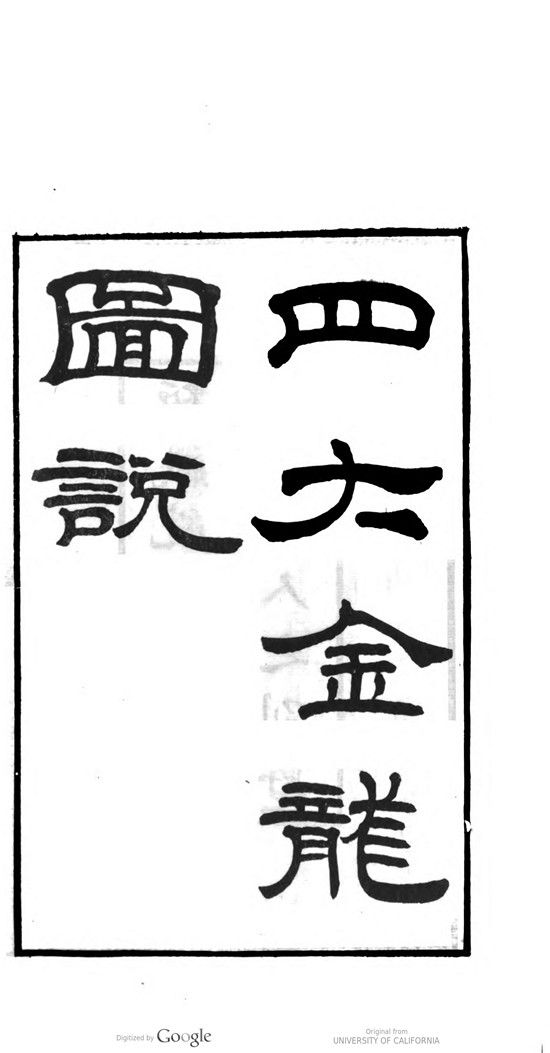 四大金龍
圖說
Digitized by Google
Original from
UNIVERSITY OF CALIFORNIA